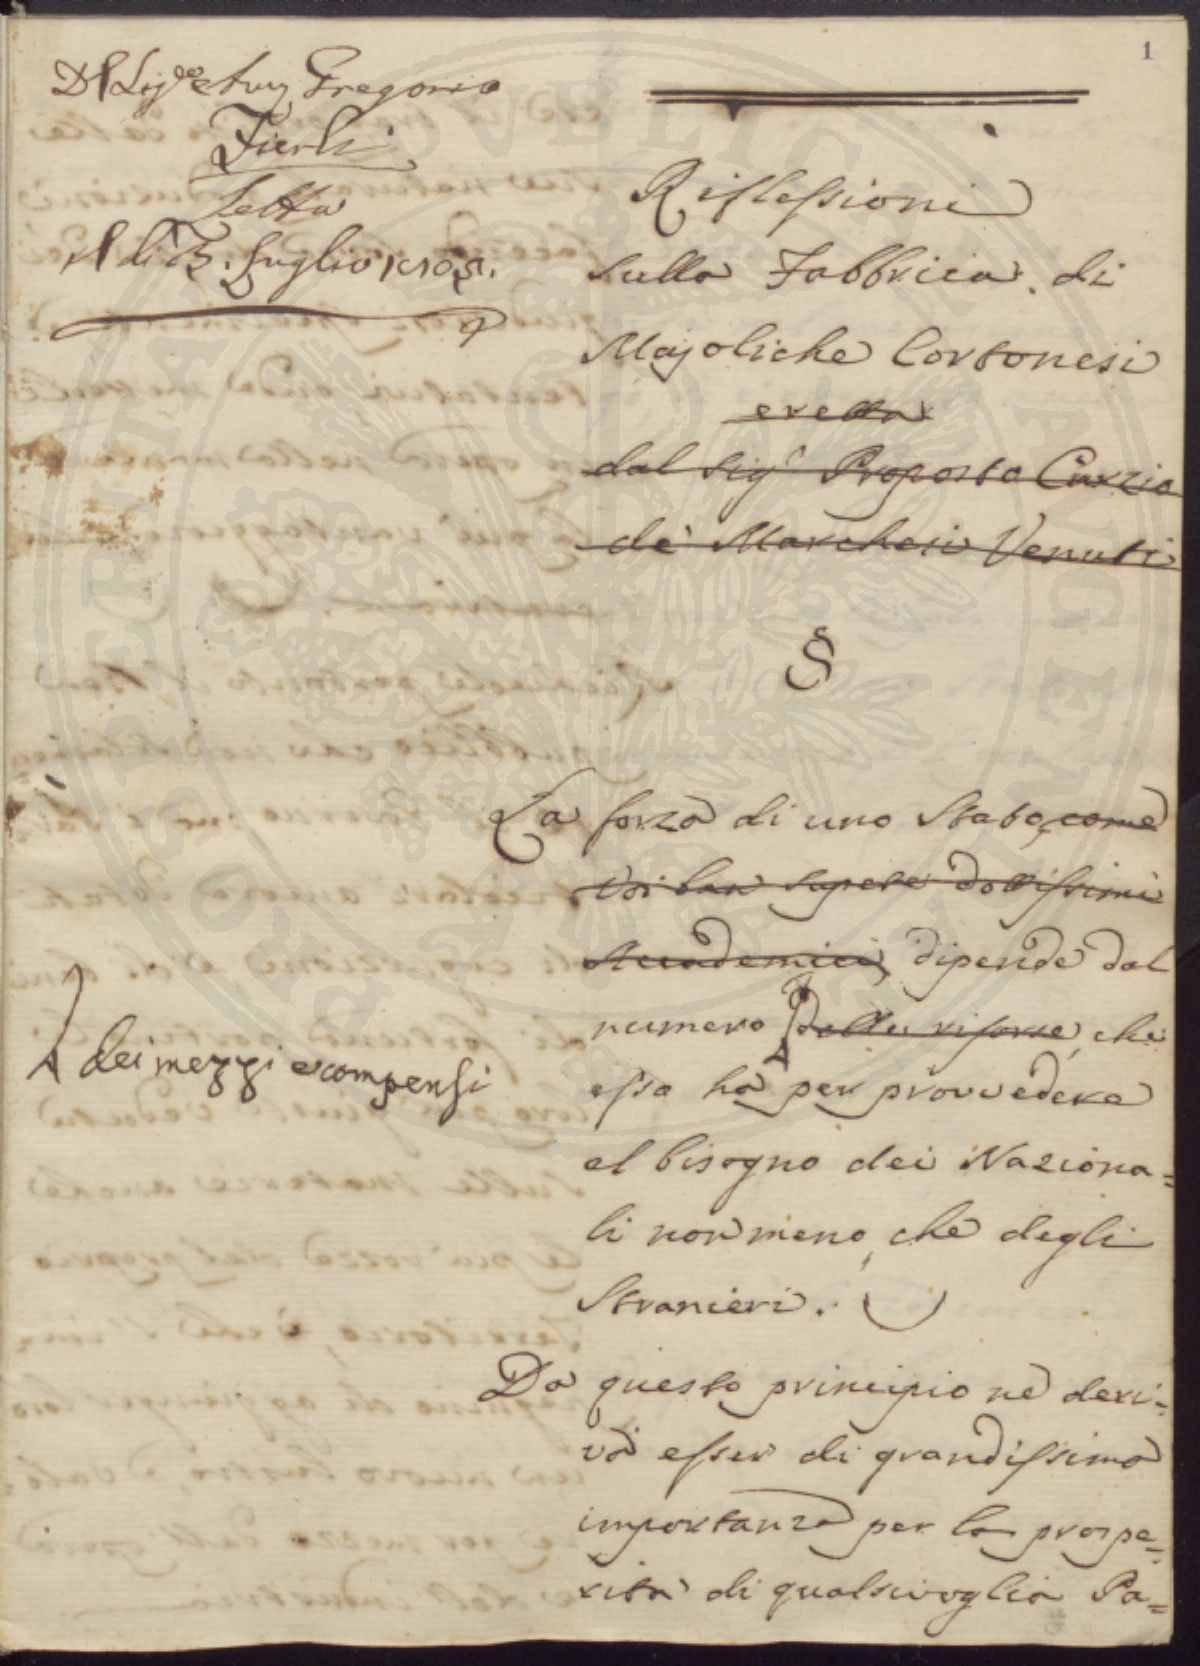 1
Del Sig.re Avv. Gregorio
Fierli
Letta
Il dì 3. Luglio 1805.
Riflessioni
sulla Fabbrica di
Majoliche Cortonesi
eretta
dal Sig.r Proposto Curzio
de' Marchesi Venuti
§
La forza di uno Stato, come
Voi ben sapete dottissimi
Accademici, dipende dal
numero delle risorse, che
dei mezzi e compensi
essa ha per provvedere
al bisogno dei Naziona=
li non meno, che degli
Stranieri.
Da questo principio ne deri=
va esser di grandissima
importanza per la prospe=
rità di qualsivoglia Pa=